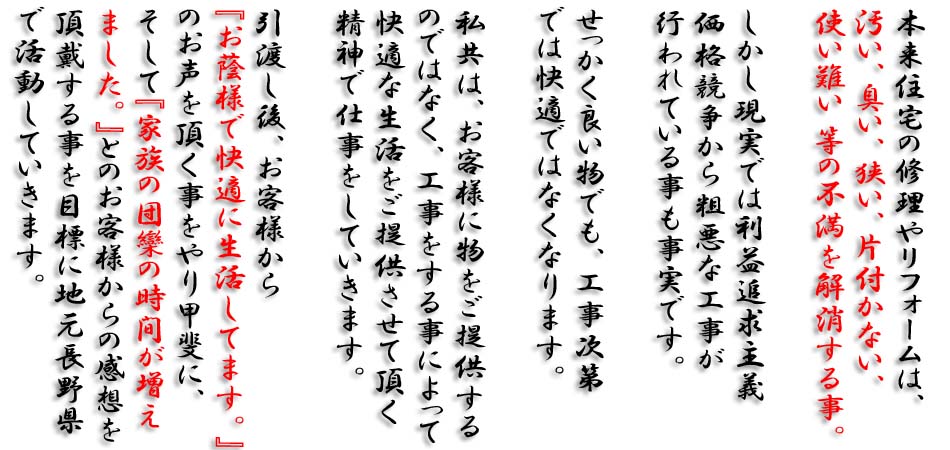 本来住宅の修理やリフォームは、
汚い、臭い、狭い、片付かない、
使い難い 等の不満を解消する事。
しかし現実では利益追求主義
価格競争から粗悪な工事が
行われている事も事実です。
せっかく良い物でも、工事次第
では快適ではなくなります。
私共は、お客様に物をご提供する
のではなく、工事をする事によって
快適な生活をご提供させて頂く
精神で仕事をしていきます。
引渡し後、お客様から
『お蔭様で快適に生活してます。』
のお声を頂く事をやり甲斐に、
そして『家族の団欒の時间が増え
ました。』とのお客様からの感想を
頂戴する事を目標に地元長野県
で活動していきます。